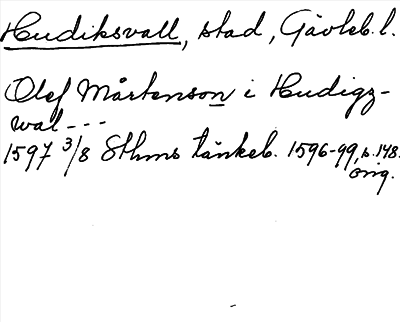 Hudiksvall, stad, Gävleb. l.
Olef Mårtenson i Hudigz-
wal - - -
1597 3/8 Sthms tänkeb. 1596-99, s. 148.
orig.